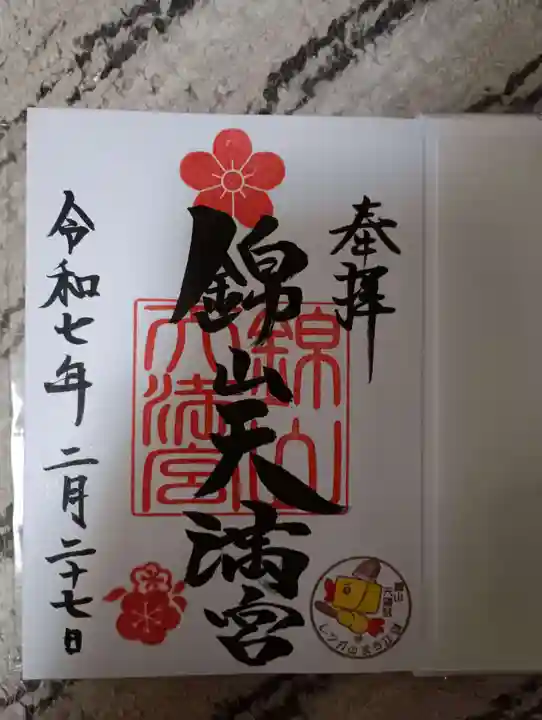 奉拝
錦山天満宮
錦山
天満宮
令和七年 二月二十七日
錦山
天満宮